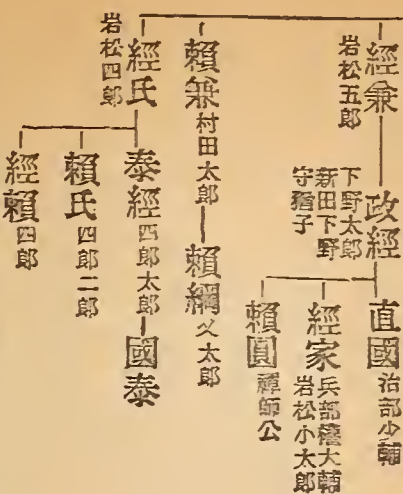 經兼
岩松五郎
政經
下野太郎
新田下野
守猶子
直國 治部少輔
經家 兵部權大輔
岩松小太郎
賴圓 禪師公
賴兼 村田太郎
賴綱 又太郎
經氏
岩松四郎
泰經 四郎太郎
國泰
賴氏 四郎二郎
經賴 四郎